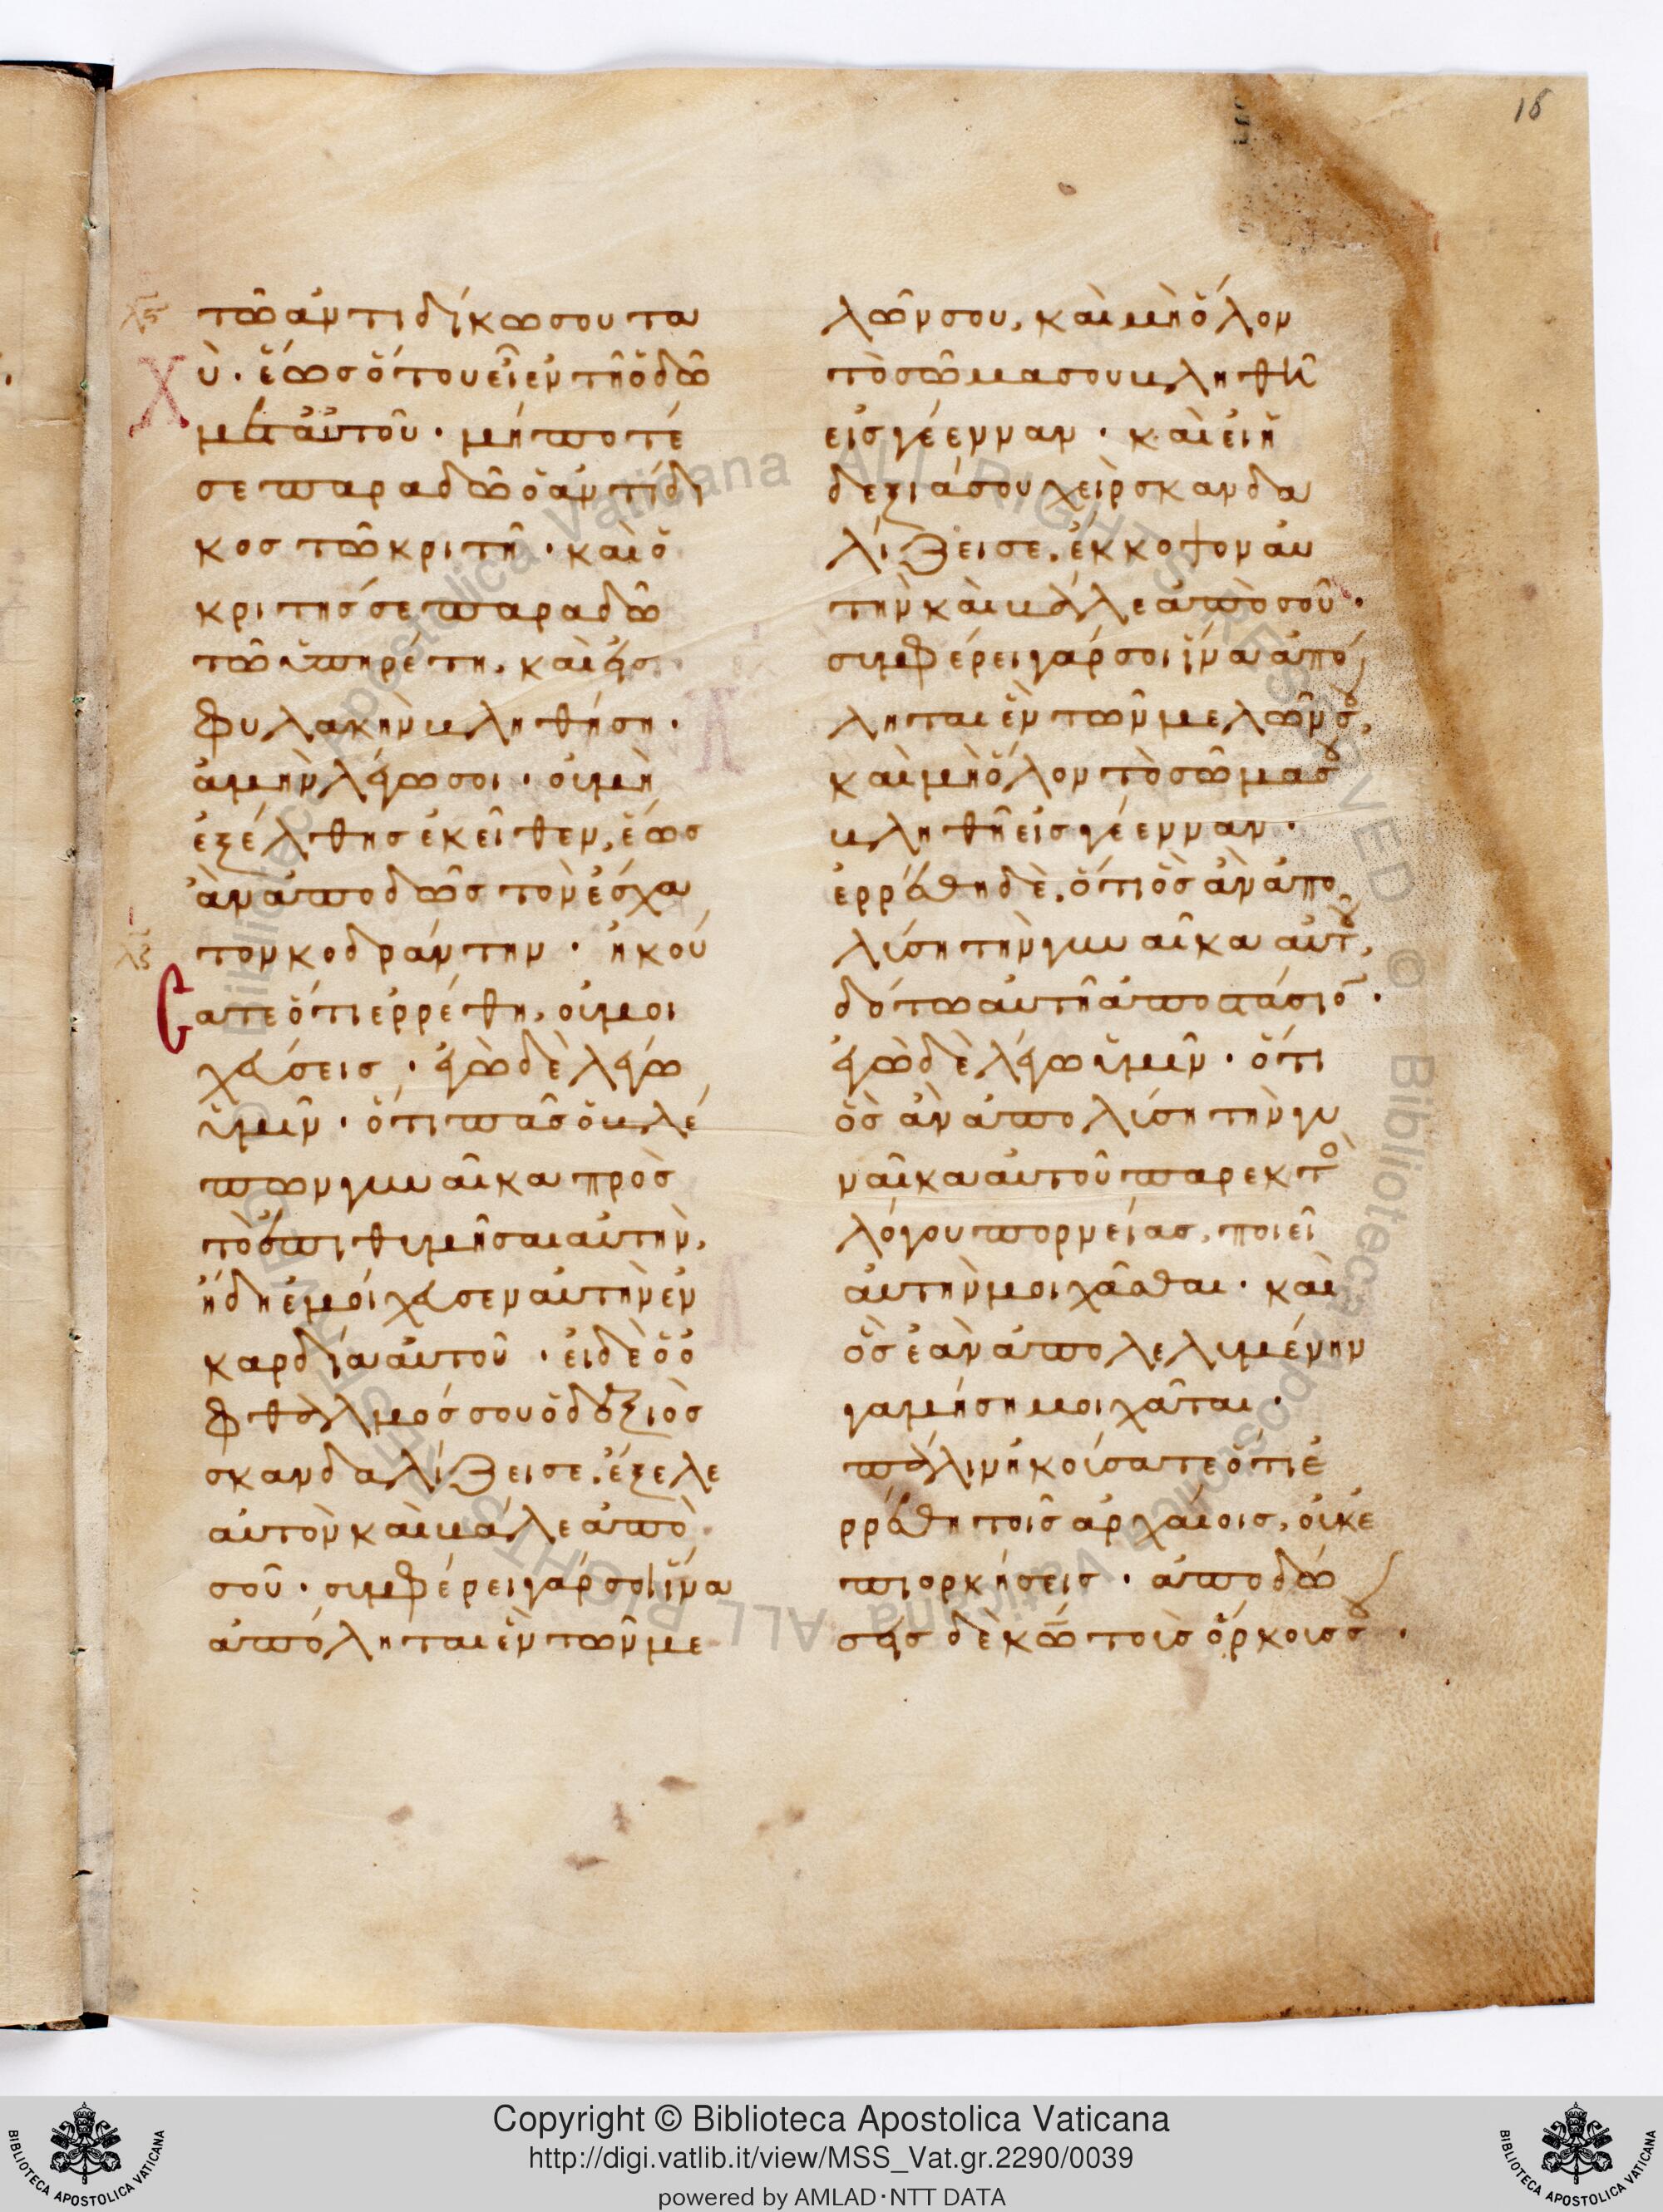 16
τῶ ἀντιδίκω σου τα
χὺ · ἕως ὅτου εἶ ἐν τῆ ὁδῶ
μετ αὐτοῦ · μήποτέ
σε παραδῶ ὁ ἀντίδι
κος τῶ κριτῆ · καὶ ὁ
κριτής σε παραδῶ
τῶ ὑπηρέτη, καὶ εἰς
φυλακὴν βληθήση ·
ἀμὴν λέγω σοι · οὐ μὴ
ἐξέλθης ἐκεῖθεν, ἕως
ἂν ἀποδῶς τὸν ἔσχα
τον κοδράντην · ἠκού
σατε ὅτι ἐρρέθη, οὐ μοι
χεύσεις · ἐγὼ δὲ λέγω
ὑμῖν · ὅτι πᾶς ὁ βλέ
πων γυναῖκα πρὸς
τὸ ἐπιθυμῆσαι αὐτὴν,
ἤδη ἐμοίχευσεν αὐτὴν ἐν
καρδία αὐτοῦ · εἰ δὲ ὁ ὀ
φθαλμός σου ὁ δεξιὸς
σκανδαλίζει σε, ἔξελε
αὐτὸν καὶ βάλε ἀπὸ
σοῦ · συμφέρει γάρ σοι ἵνα
ἀπόληται ἓν τῶν με
λῶν σου, καὶ μὴ ὅλον
τὸ σῶμα σου βληθῆ
εἰς γέενναν · καὶ εἰ ἡ
δεξιά σου χεὶρ σκανδα
λίζει σε, ἔκκοψον αὐ
τὴν καὶ βάλε ἀπὸ σοῦ ·
συμφέρει γάρ σοι ἵνα ἀπό
ληται ἓν τῶν μελῶν σου,
καὶ μὴ ὅλον τὸ σῶμα σου
βληθῆ εἰς γέενναν ·
ἐρρέθη δὲ, ὅτι ὃς ἂν ἀπο
λύση τὴν γυναῖκα αὐτοῦ,
δότω αὐτῆ ἀποστάσιον ·
ἐγὼ δὲ λέγω ὑμῖν · ὅτι
ὃς ἂν ἀπολύση τὴν γυ
ναῖκα αὐτοῦ παρεκτὸς
λόγου πορνείας, ποιεῖ
αὐτὴν μοιχᾶσθαι · καὶ
ὃς ἐὰν ἀπολελυμένην
γαμήση μοιχᾶται ·
πάλιν ἠκούσατε ὅτι ἐ
ρρέθη τοῖς ἀρχαίοις, οὐκ ἐ
πιορκήσεις · ἀποδώ
σεις δὲ κω τοὺς ὅρκους σου ·
Copyright © Biblioteca Apostolica Vaticana
http://digi.vatlib.it/view/MSS_Vat.gr.2290/0039
powered by AMLAD·NTT DATA